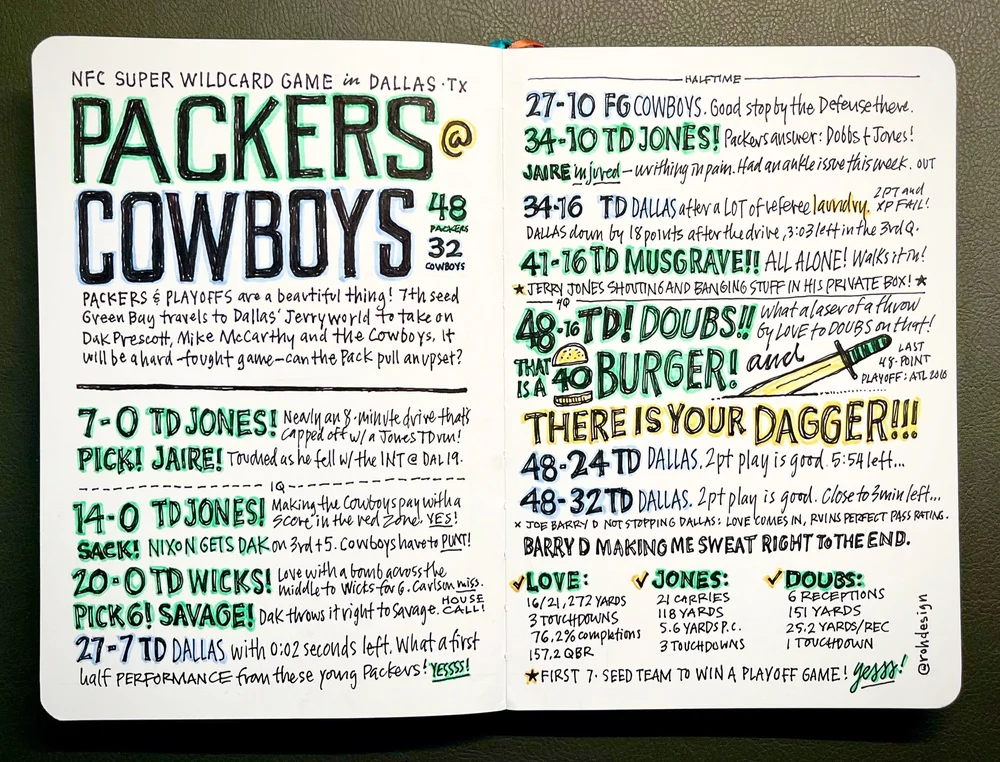 NFC SUPER WILDCARD GAME in DALLAS · TX
PACKERS @
COWBOYS
48
PACKERS
32
COWBOYS
PACKERS & PLAYOFFS are a beautiful thing! 7th seed
Green Bay travels to Dallas' Jerryworld to take on
Dak Prescott, Mike McCarthy and the Cowboys, It
will be a hard-fought game—can the Pack pull an upset?
7-0 TD JONES! Nearly an 8-minute drive that's
capped off w/ a Jones TD run!
PICK! JAIRE! Touched as he fell w/ the INT @ DAL 19.
1Q
14-0 TD JONES! Making the Cowboys pay with a
score in the red zone. YES!
SACK! NIXON GETS DAK on 3rd + 5. Cowboys have to PUNT!
20-0 TD WICKS! Love with a bomb across the
middle to Wicks for 6. Carlson miss.
PICK 6! SAVAGE! Dak throws it right to Savage. HOUSE
CALL!
27-7 TD DALLAS with 0:02 seconds left. What a first
half PERFORMANCE from these young Packers! YESSSS!
HALFTIME
27-10 FG COWBOYS. Good stop by the Defense there.
34-10 TD JONES! Packers answer: Dobbs + Jones!
JAIRE injured — writhing in pain. Had an ankle issue this week. OUT
34-16 TD DALLAS after a LOT of referee laundry. 2PT and
XP FAIL!
DALLAS down by 18 points after the drive, 3:03 left in the 3rd Q.
41-16 TD MUSGRAVE!! ALL ALONE! Walks it in!
★ JERRY JONES SHOUTING AND BANGING STUFF IN HIS PRIVATE BOX! ★
4Q
48-16 TD! DOUBS!! what a laser of a throw
by LOVE to DOUBS on that!
THAT
IS A 40 BURGER! and
LAST
48-POINT
PLAYOFF: ATL 2010
THERE IS YOUR DAGGER!!!
48-24 TD DALLAS. 2pt play is good. 5:54 left...
48-32 TD DALLAS. 2pt play is good. Close to 3 min left...
× JOE BARRY D NOT STOPPING DALLAS: LOVE COMES IN, RUINS PERFECT PASS RATING.
BARRY D MAKING ME SWEAT RIGHT TO THE END.
✓ LOVE:
16/21, 272 YARDS
3 TOUCHDOWNS
76.2% completions
157.2 QBR
✓ JONES:
21 CARRIES
118 YARDS
5.6 YARDS P.C.
3 TOUCHDOWNS
✓ DOUBS:
6 RECEPTIONS
151 YARDS
25.2 YARDS/REC
1 TOUCHDOWN
★ FIRST 7-SEED TEAM TO WIN A PLAYOFF GAME! yesss!
@rohdesign